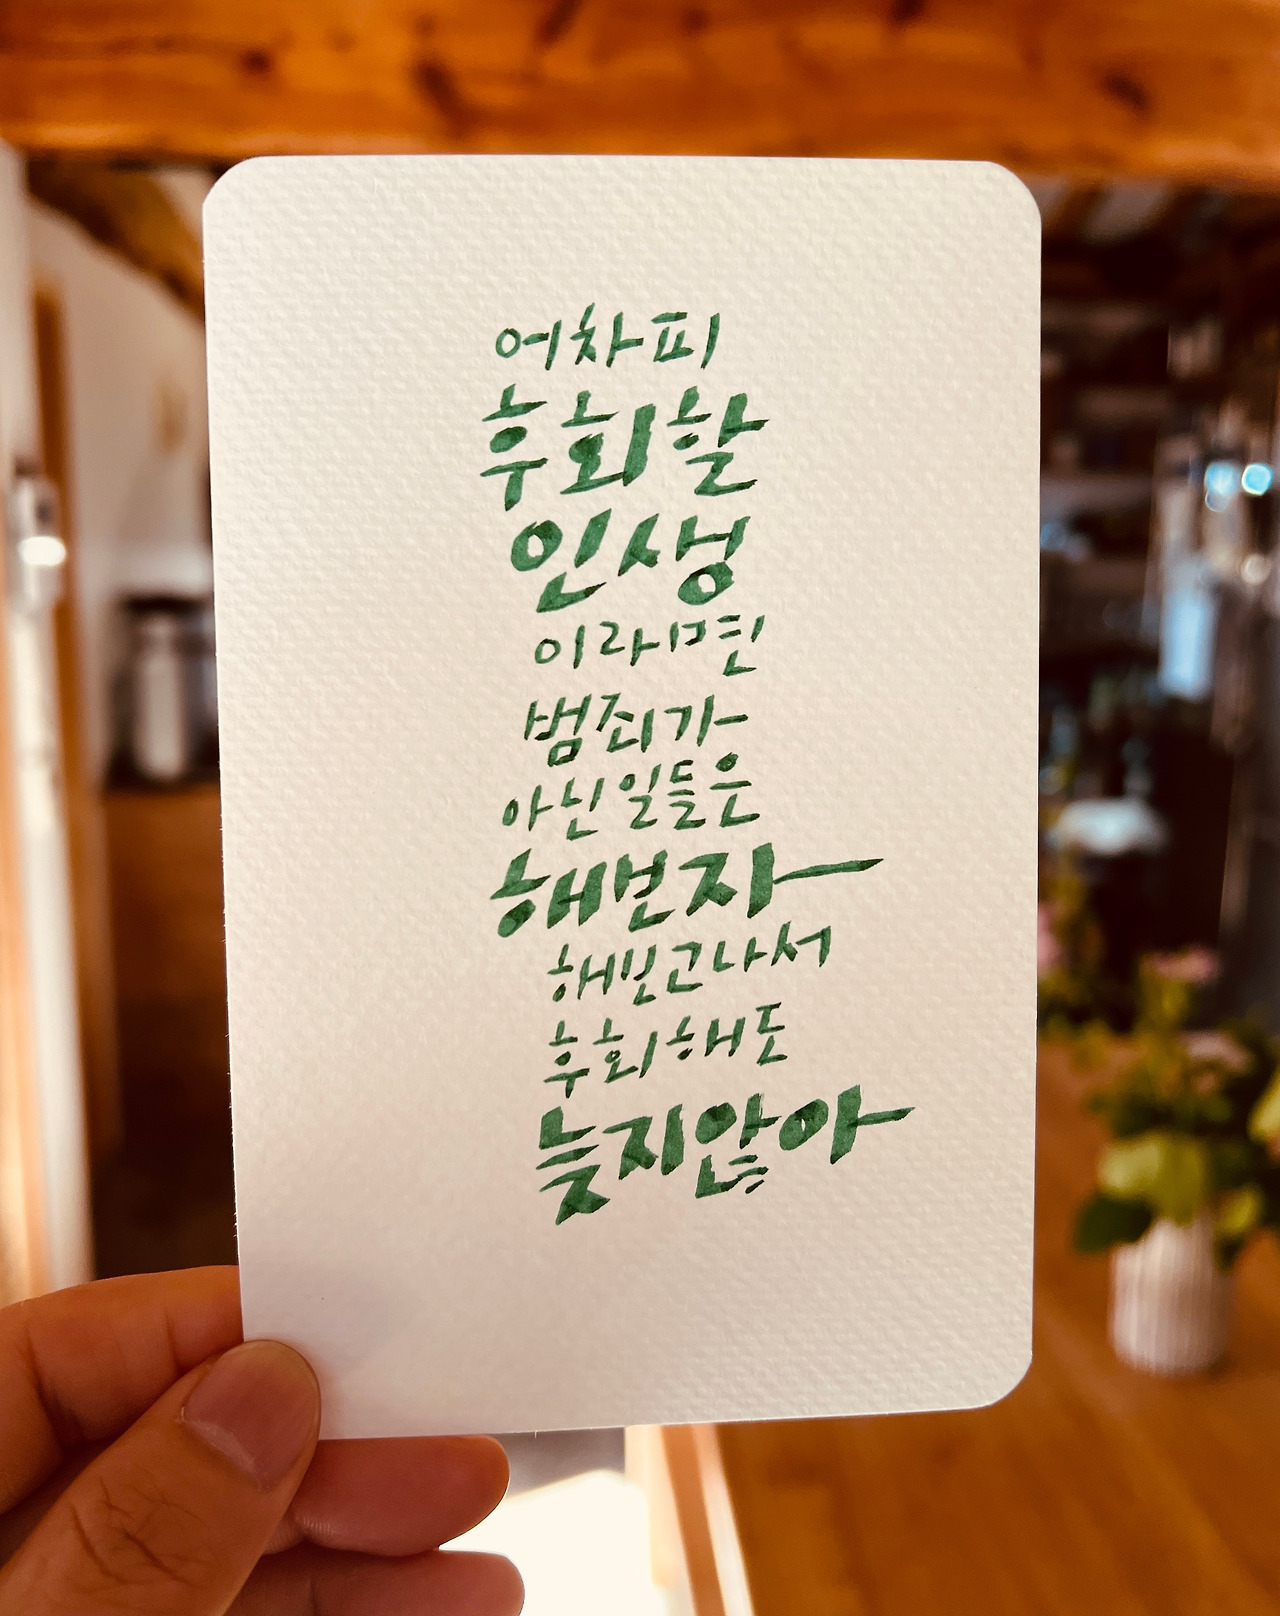 어차피
후회할
인생
이라면
범죄가
아닌일들은
해변자
해빈고나서
후회해도
늦지않아